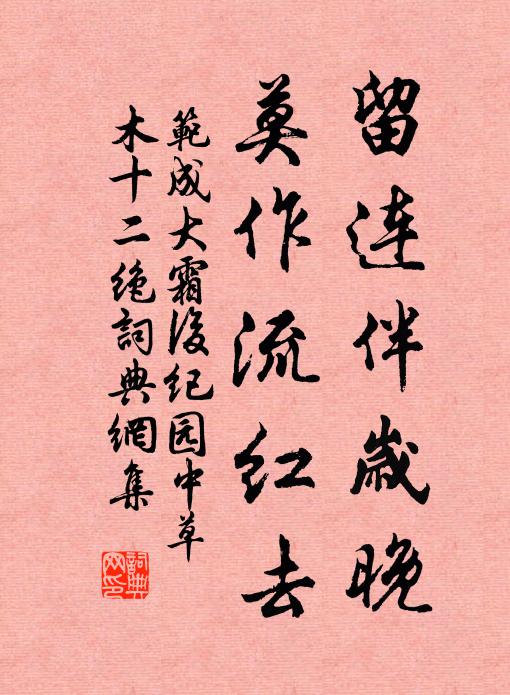 留连伴岁晚
莫作流红去
範成大霜後纪园中草
木十二绝詞典網集
詞典
网印